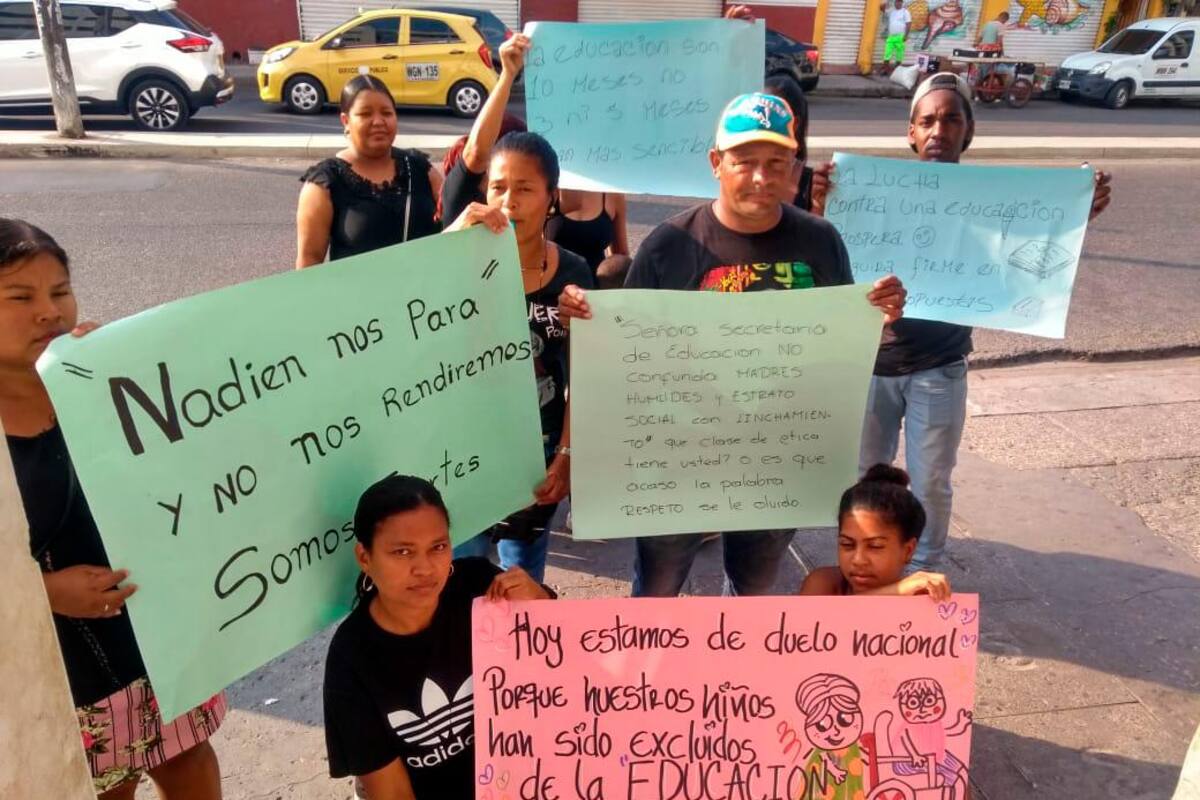 SERVICIO PUBLICO
WGN·135
la educacion son
10 Meses no
3 ni 5 Meses
an mas sencibl
La LUCHA
contra una educacion
prospera
firme en
opuestas
"Nadien nos Para"
y no nos Rendiremos
Somos rtes
"Señora secretaria
de Educacion NO
confunda MADRES
HUMILDES y ESTRATO
SOCIAL con LINCHAMIEN-
TO" que clase de etica
tiene usted? o es que
acaso la palabra
RESPETO se le olvido.
adidas
Hoy estamos de duelo nacional
Porque nuestros niños
han sido excluidos
de la "EDUCACION